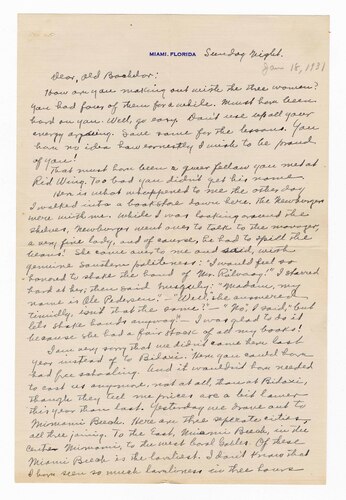 MIAMI, FLORIDA
Sunday Night.
Jan 18, 1931
Dear, Old Bachelor:
How are you making out with the three women?
You had four of them for a while. Must have been
hard on you. Well, go easy. Don't use up all your
energy arguing. Save some for the lessons. You
have no idea how earnestly I wish to be proud
of you!
That must have been a queer fellow you met at
Red Wing. Too bad you didn't get his name
Here is what whappened to me the other day
I walked into a bookstore down here. The Newburgers
were with me. While I was looking around the
shelves, Newburger went over to talk to the manager,
a very fine lady, and of course, he had to spill the
beans! She came over to me and said, with
genuine Southern politeness: "I would feel so
honored to shake the hand of Mr. Rölvaag!" I stared
hard at her, then said brusquely: "Madam, my
name is Ole Pedersen." — "Well, she answered
timidly, isn't that the same?" — "No", I said, "but
let's shake hands anyway." — I was glad to do it
because she had a fair stock of all my books!
I am very sorry that we didn't come here last
year instead of to Biloxi. Here you could have
had free schooling. And it wouldn't have needed
to cost us anymore, not at all, than at Biloxi,
though they tell me prices are a bit lower
this year than last. Yesterday we drove out to
Mimami Beach. Here are three seperate cities,
all three joining. To the East, Miami Beach, in the
center Mimami, to the west Coral Gables. Of these
Miami Beach is the loveliest. I don't know that
I have seen so much loveliness in three hours